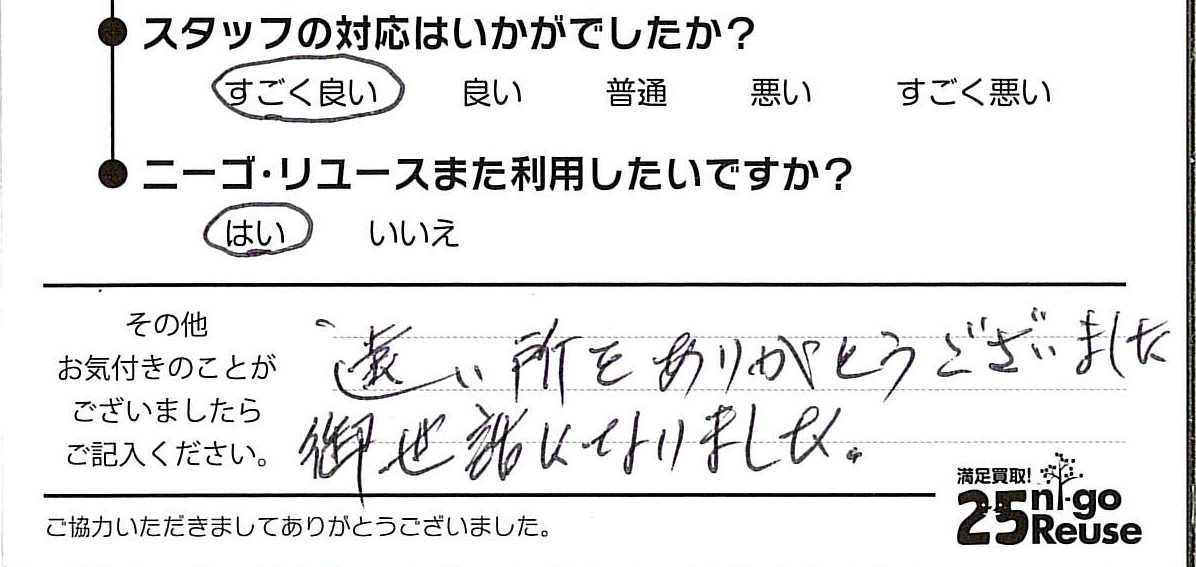 スタッフの対応はいかがでしたか？
すごく良い 良い 普通 悪い すごく悪い
ニーゴ・リユースまた利用したいですか？
はい いいえ
その他
お気付きのことが
ございましたら
ご記入ください。
遠い所をありがとうございました
御世話になりました。
ご協力いただきましてありがとうございました。
満足買取!
25 ni-go
Reuse